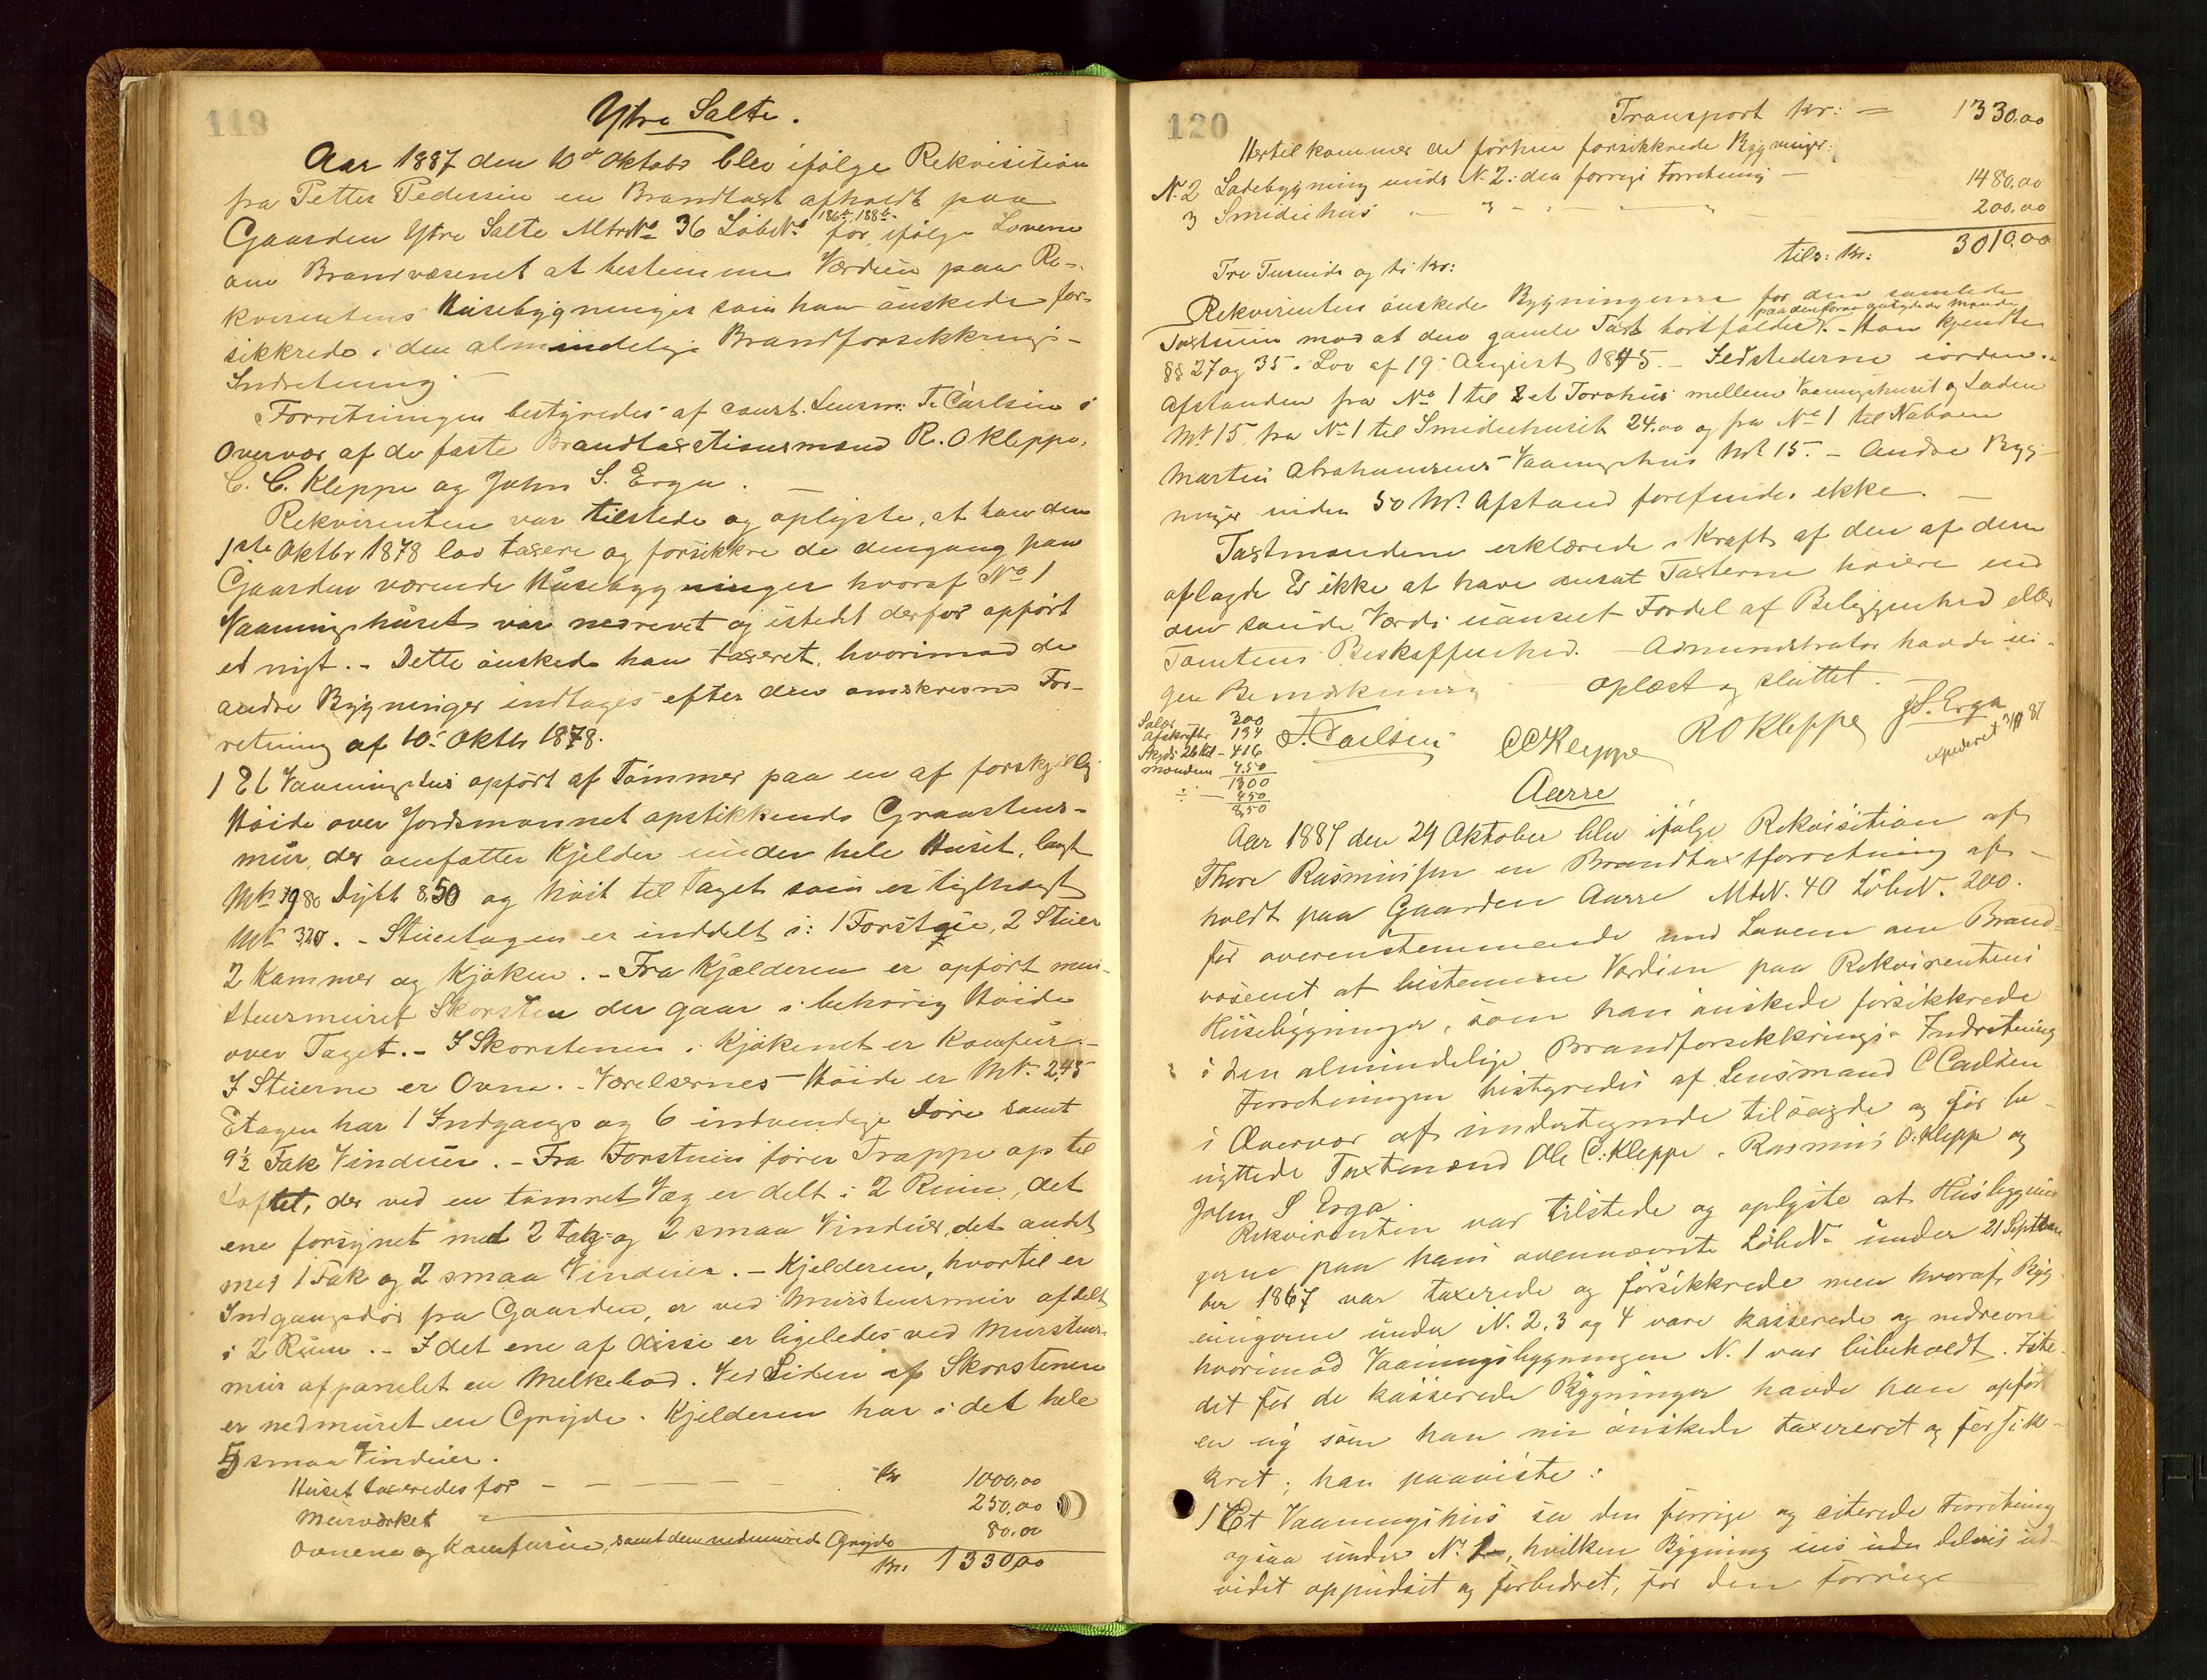 119
Ytre Salte.
Aar 1887 den 10de Oktobr blev ifølge Rekvisition
fra Petter Pedersen en Brandtaxt afholdt paa
Gaarden Ytre Salte MtrNo 36 LøbeNo 186b, 188b for ifølge Lovene
om Brandvæsenet at bestemme Værdien paa Re-
kvirentens Husebygninger som han ønskede for-
sikkrede i den almindelige Brandforsikkrings-
Indretning
Forretningen bestyredes af const. Lensm: T. Carlsen i
Overvær af de faste Brandtaxtionsmænd R. O Kleppe,
C. C. Kleppe og John S. Erga. —
Rekvirenten var tilstede og oplyste, at han den
1ste Oktbr 1878 lod taxere og forsikkre de dengang paa
Gaarden værende Husebygninger hvoraf No 1
Vaaningshuset var nedrevet og istedet derfor opført
et nyt. - Dette ønskede han taxeret, hvorimod de
andre Bygninger indtages efter den omskrevne For-
retning af 10: Oktbr 1878.
1 Et Vaaningshus opført af Tømmer paa en af forskjellig
Høide over Jordsmonnet opstikkende Graastens-
mur, der omfatter Kjelder under hele Huset, langt
Mtr 9,80 Dybt 8,50 og høit til Taget som er tighengt
Mtr 3,20. - Stueetagen er inddelt i: 1 Forstue, 2 Stuer
2 Kammer og Kjøken. - Fra Kjælderen er opført mur-
stensmuret Skorsten der gaar i behørig Høide
over Taget. - I Skorstenen i Kjøkenet er Komfur. -
I Stuerne er Ovne. - Værelsernes Høide er Mtr. 2,45
Etagen har 1 Indgangs og 6 indvendige Døre samt
9½ Fak Vinduer. - Fra Forstuen fører Trappe op til
Loftet, der ved en tømret Væg er delt i 2 Rum, det
ene forsynet med 2 Fak og 2 smaa Vinduer, det andet
med 1 Fak og 2 smaa Vinduer. - Kjelderen, hvortil er
Indgangsdør fra Gaarden, er ved Murstensmur afdelt
i 2 Rum. - I det ene af disse er ligeledes ved Murstens-
mur afpanelet en Melkebod. Ved Siden af Skorstenen
er nedmuret en Gryde. Kjelderen har i det hele
5 smaa Vinduer.
Huset taxeredes for — — — — Kr 1000,00
Murværket — 250,00
Ovnene og Komfurene, samt den nedmurede Gryde 80,00
Kr. 1330,00
120
Transport Kr: = 1330,00
Hertil kommer de forhen forsikkrede Bygninger:
N. 2 Ladebygning under N. 2: den forrige Forretning — 1480,00
3 Smidiehus „ — 3 - „ — „ 200,00
tils: Kr: 3010,00
Tre Tusinde og ti Kr:
Rekvirenten ønskede Bygningerne for den samlede
paa den foran antydede Maade
Taxtsum mod at den gamle Taxt bortfalder. - Han kjendte
§§ 27 og 35 i Lov af 19: August 1845. - Ildstederne iorden. -
Afstanden fra No 1 til 2 et Torvhus mellem Vaaningshuset og Laden
Mtr 15, fra No 1 til Smidiehuset 24.00 og fra No 1 til Naboen
Martin Abrahamsens Vaaningshus Mtr 15. - Andre Byg-
ninger inden 50 Mtr. Afstand forefindes ikke. —
Taxtmændene erklærede i Kraft af den af dem
aflagde Ed ikke at have ansat Taxterne høiere end
den sande Værdi uanseet Fordel af Beliggenhed eller
Tomtens Beskaffenhed. - Administrator havde in-
gen Bemerkning — Oplæst og sluttet.
Salær 300
Afskrifter 134
Skyds 26 Kil - 416
Mændene 4.50
1300
÷ — 450
8,50
T. Carlsen CCKleppe ROKleppe JS. Erga
expederet 3/11 87
Aarre
Aar 1887 den 24 Oktober blev ifølge Rekvisition af
Thore Rasmussen en Brandtaxtforretning af-
holdt paa Gaarden Aarre MtrN. 40 LøbeN. 200.
for overenstemmende med Loven om Brand-
væsenet at bestemme Værdien paa Rekvirentens
Husebygninger, som han ønskede forsikkrede
i den almindelige Brandforsekkrings- Indretning
Forretningen bestyredes af Lensmand C Carlsen
i Overvær af undertegnede tilsagde og før be-
nyttede Taxtmænd Ole C: Kleppe, Rasmus O: Kleppe og
John S Erga.
Rekvirenten var tilstede og oplyste at Husbygnin-
gerne paa hans ovennævnte LøbeN. under 21 Septem-
ber 1867 var taxerede og forsikkrede men hvoraf Byg-
ningerne under N. 2, 3 og 4 vare kasserede og nedrevne
hvorimod Vaaningsbygningen N. 1 var bibeholdt. Iste-
det for de kasserede Bygninger havde han opført
en ny som han nu ønskede taxereret og forsik-
kret; han paaviste:
1 Et Vaaningshus se den forrige og citerede Forretning
ogsaa under No 1, hvilken Bygning deleis ud-
videt oppudset og forbedret, for den forrige